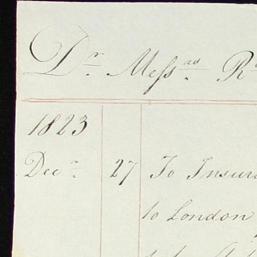 Dr. Messrs. R
1823
Decr. 27 To Insur
to London